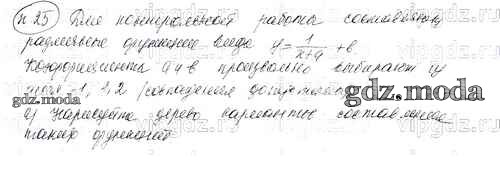 № 25) Для контрольной работы составляют
различные функции вида y = 1/(x+a) + в
Коэффициенты a и в произвольно выбирают из
чисел -1, 1, 2 (совпадения допустимы)
gdz.moda
а) Нарисуйте дерево вариантов составления
таких функций
gdz.moda